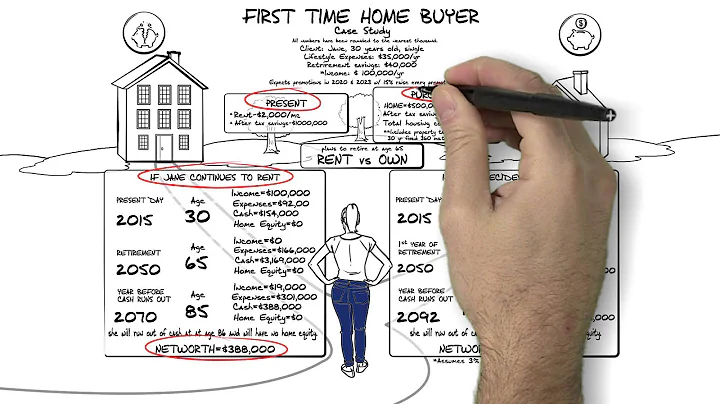 FIRST TIME HOME BUYER
Case Study
All numbers have been rounded to the nearest thousand.
Client: Jane, 30 years old, single
Lifestyle Expenses: $35,000/yr
Retirement savings: $40,000
*Income: $ 100,000/yr
Expects promotions in 2020 & 2023 w/ 15% raise every
PRESENT
• Rent=$2,000/mo
• After tax savings=$1000000
HOME=$500,
After tax
Total housing
*Includes property
30 yr fixed
plans to retire at age 65
RENT vs OWN
IF JANE CONTINUES TO RENT
PRESENT DAY
2015
Age
30
Income=$100,000
Expenses=$92,00
Cash=$154,000
Home Equity=$0
RETIREMENT
2050
Age
65
Income=$0
Expenses=$166,000
Cash=$3,169,000
Home Equity=$0
YEAR BEFORE
CASH RUNS OUT
2070
Age
85
Income=$19,000
Expenses=$301,000
Cash=$388,000
Home Equity=$0
she will run out of cash at at age 86 and will have no home equity
NETWORTH=$388,000
PRESENT DAY
2015
1st YEAR OF
RETIREMENT
2050
YEAR BEFORE
CASH RUNS OUT
2092
she will run out of
NETWO
*Assumes 3%